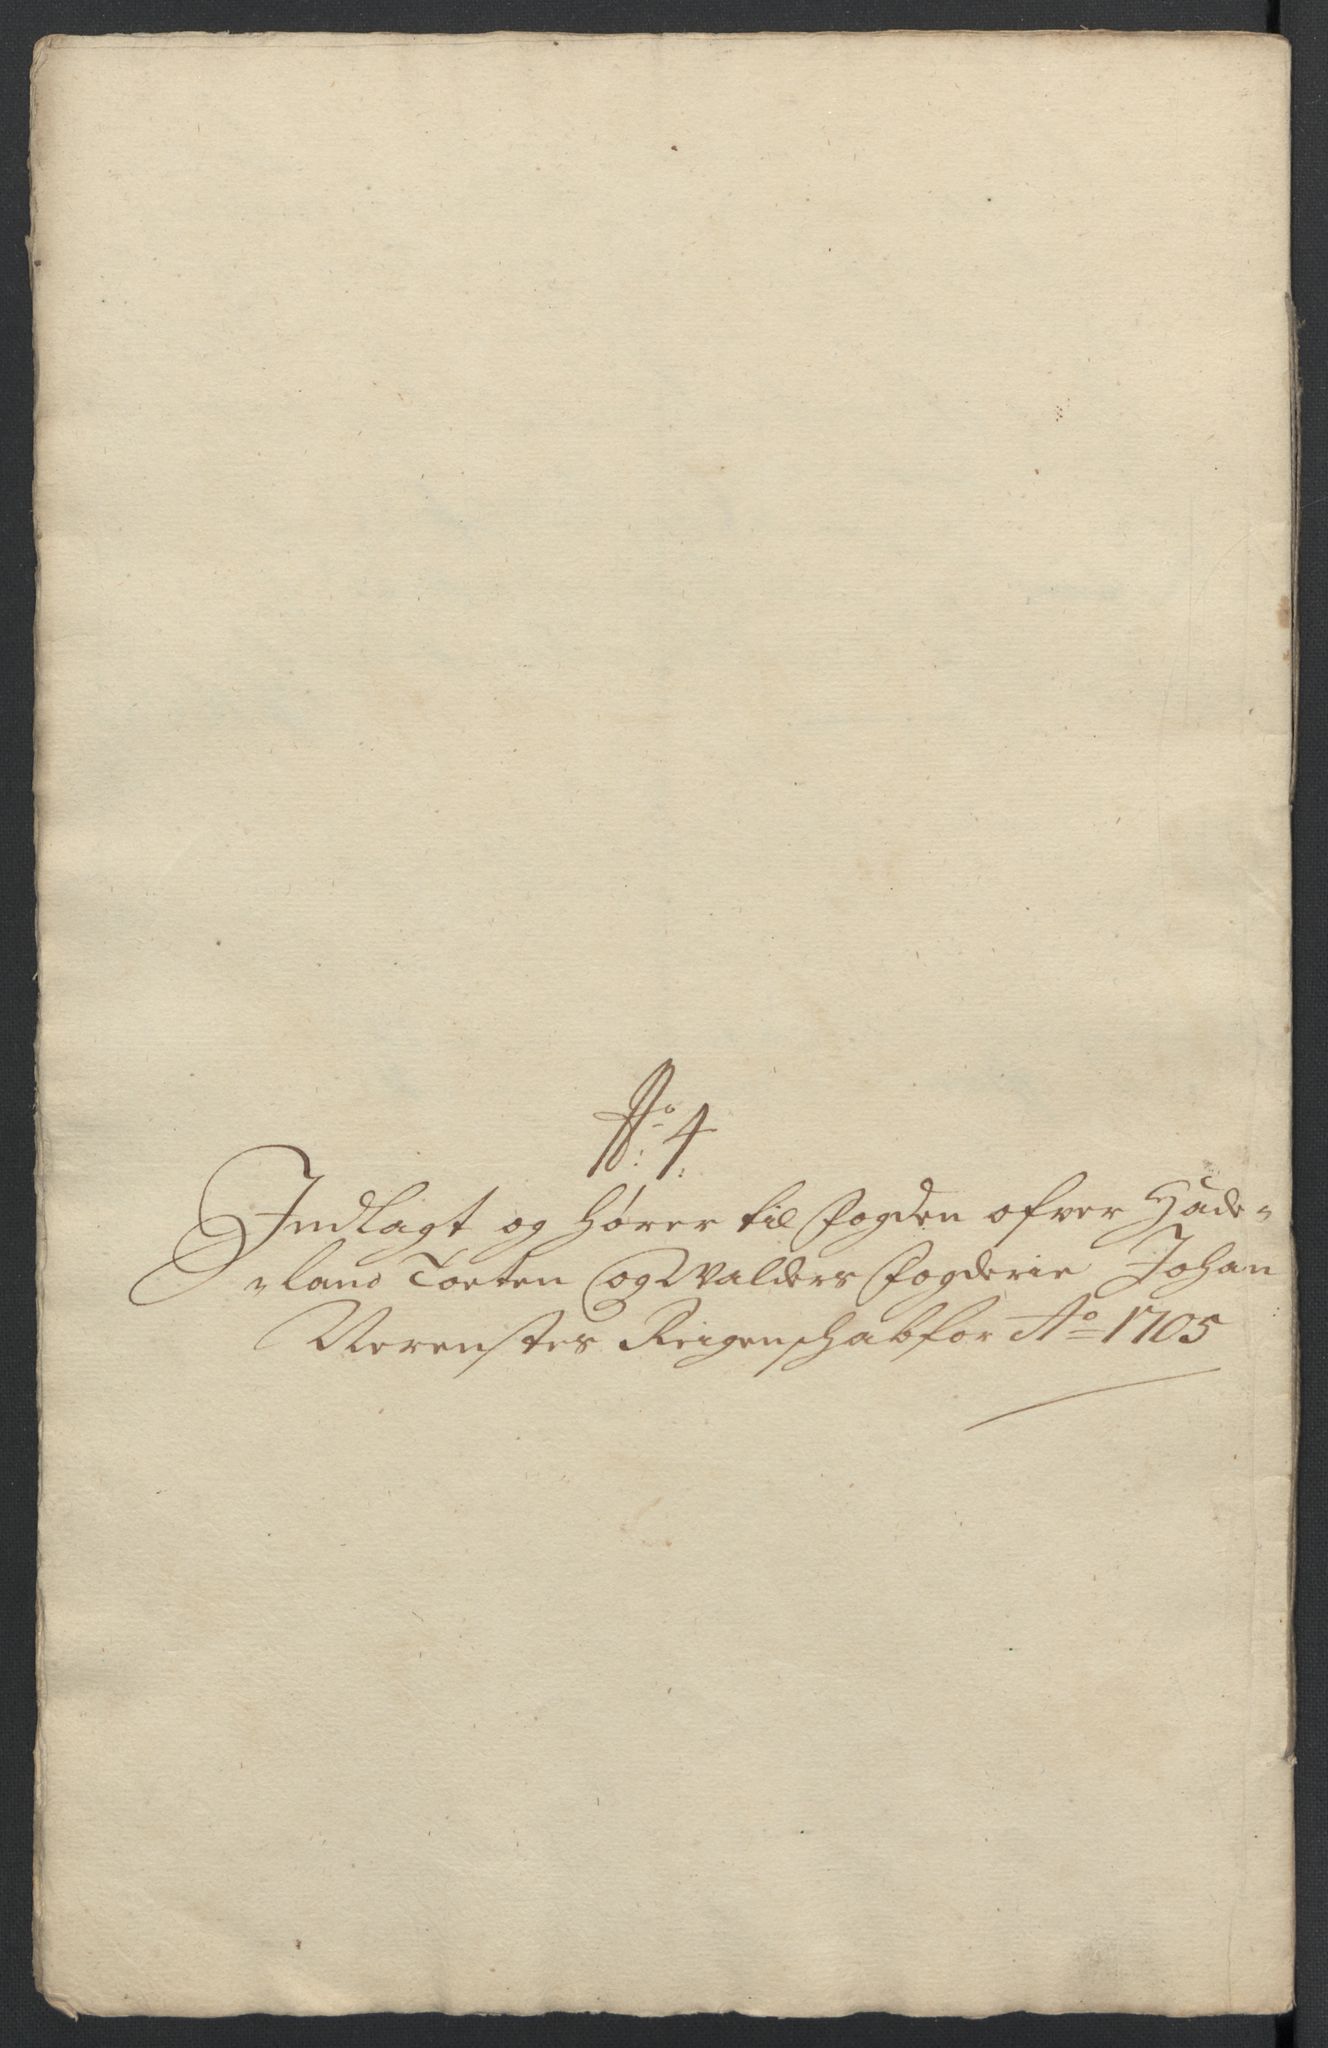 No: 4:
Indlagt og hører til fogden ofver Hade-
-land Toeten og Walders fogderie Johan
Nerenstes Reigenschab for Ao 1705